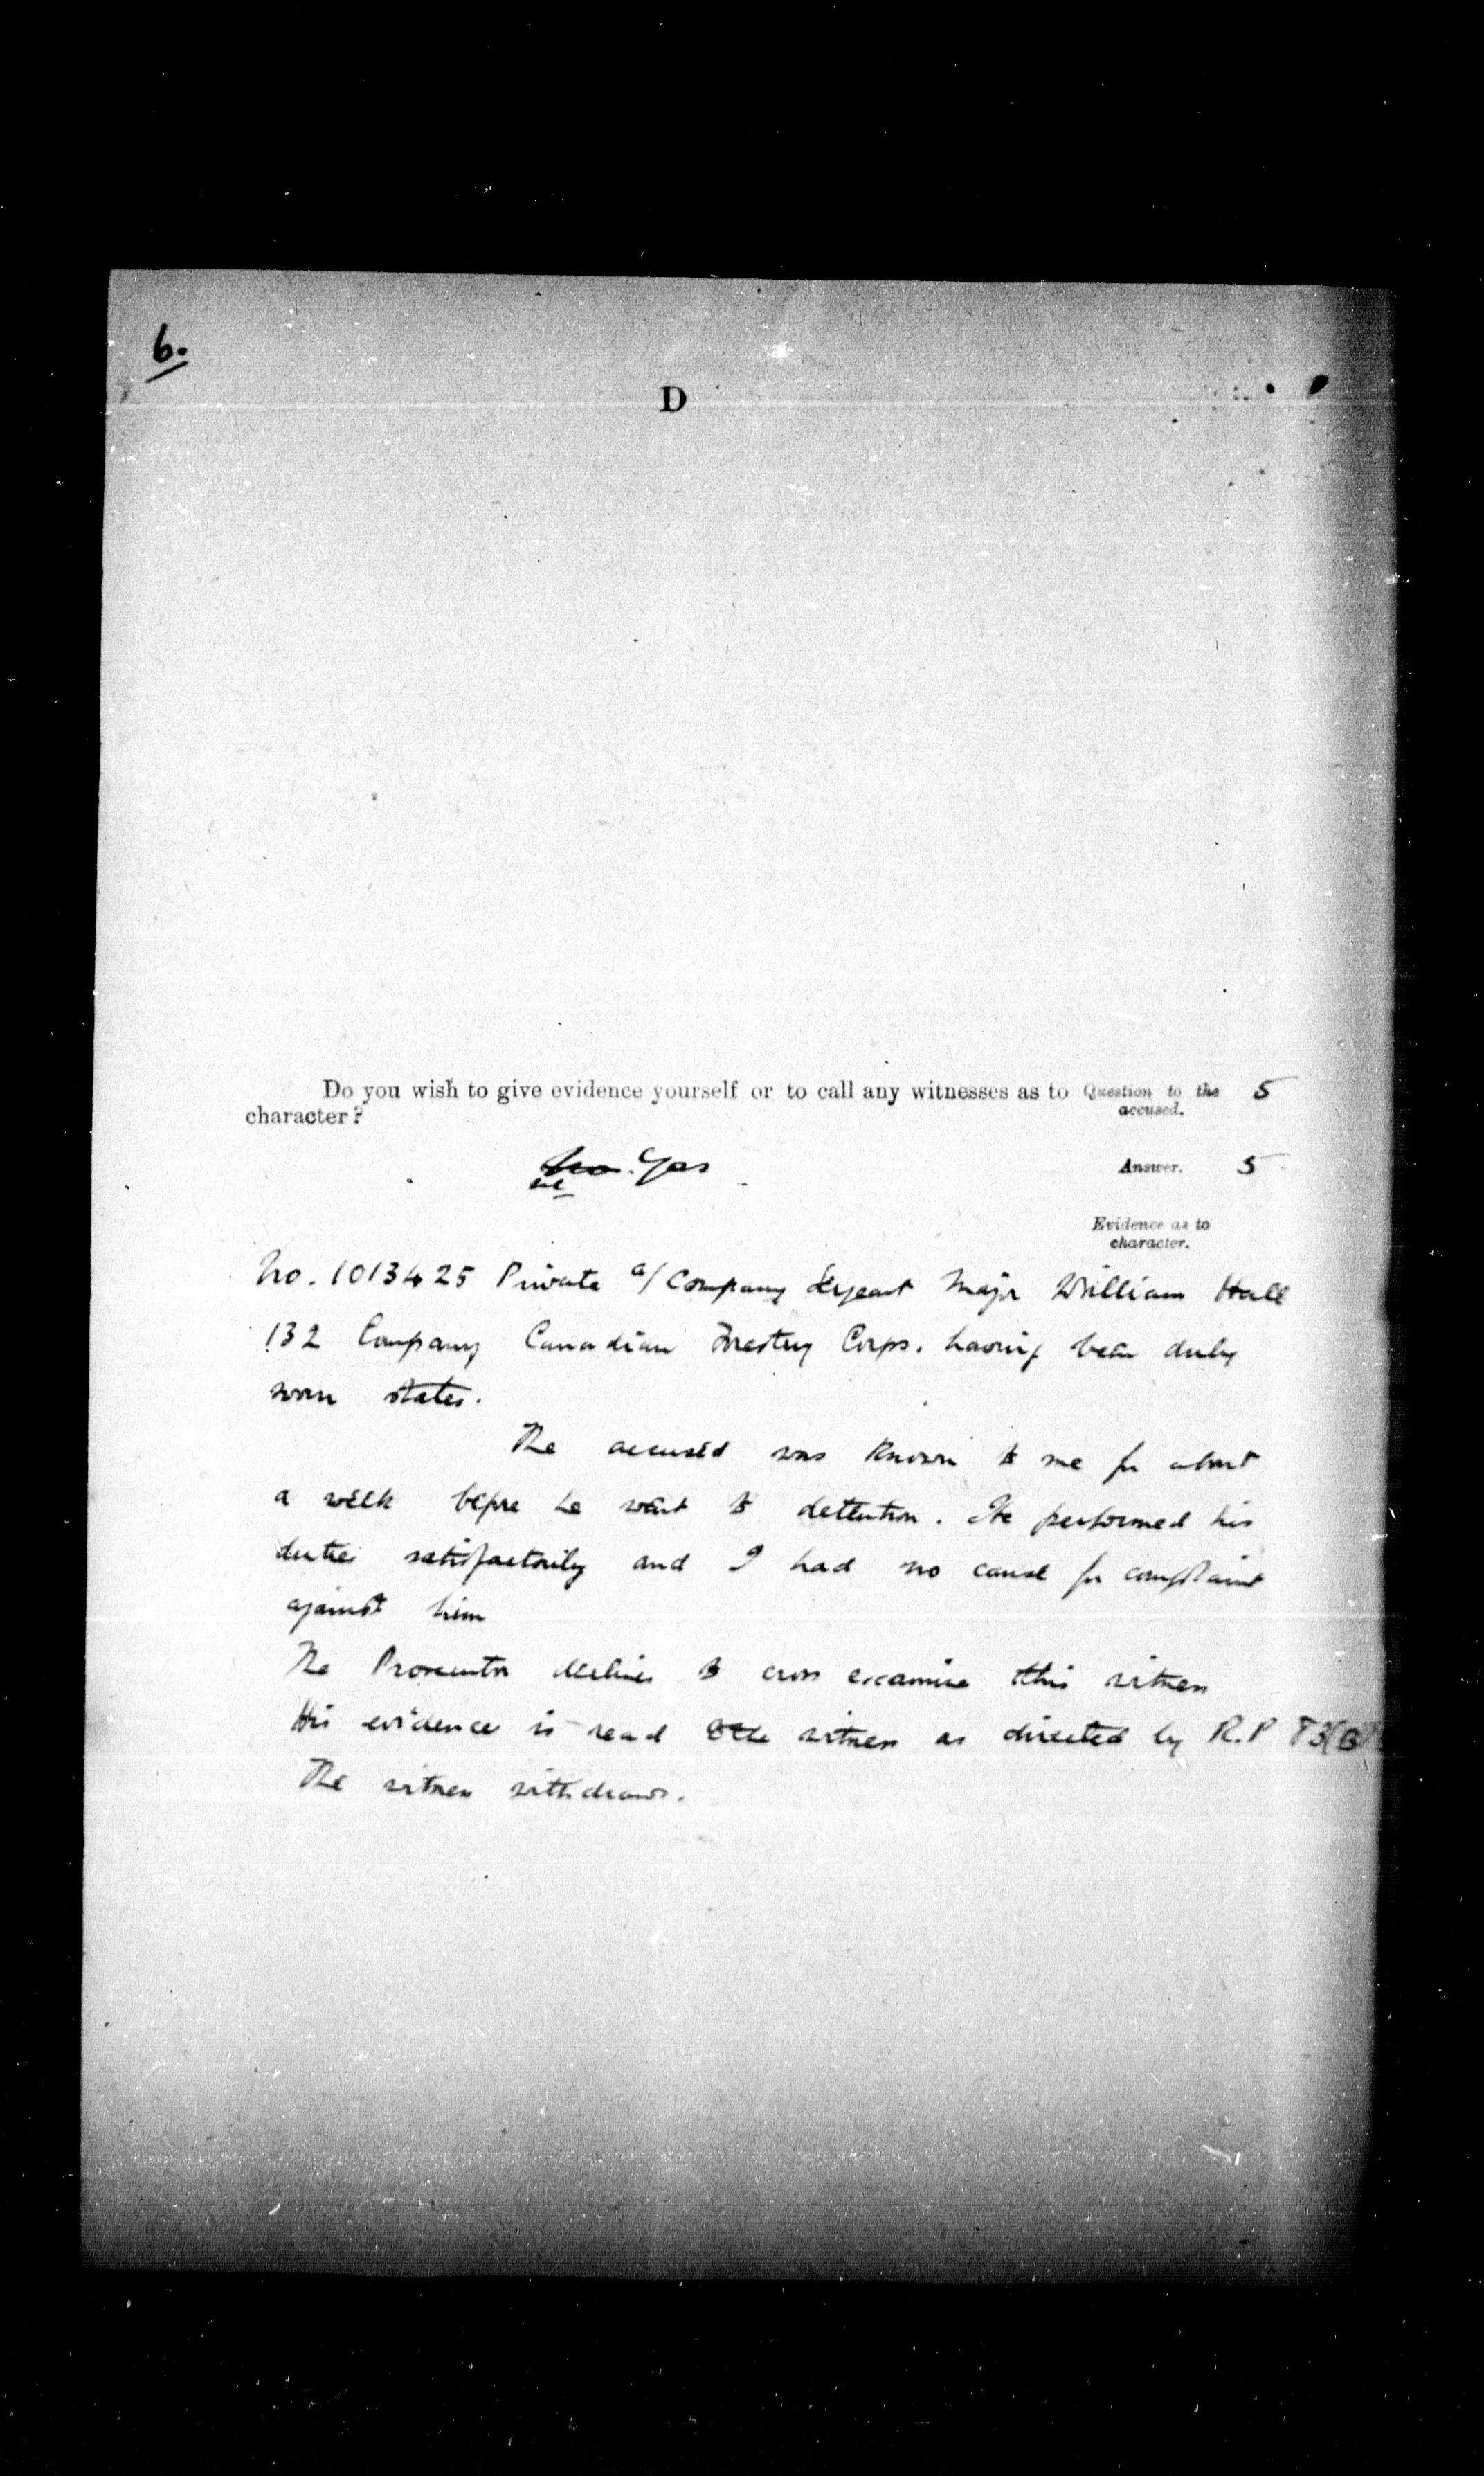 6.
D
Do you wish to give evidence yourself or to call any witnesses as to Question to the 5
character? accused.
No. Yes Answer. 5
Evidence as to
character.
No. 1013425 Private a/ Company Serjeant Major William Hall
132 Company Canadian Forestry Corps. having been duly
sworn states.
The accused was known to me for about
a week before he went to detention. He performed his
duties satisfactorily and I had no cause for complaint
against him
The Prosecutor declines to cross examine this witness
His evidence is read to the witness as directed by R.P 83(B)
The witness withdraws.